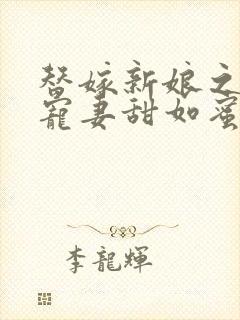 替嫁新娘之
寵妻甜如蜜
李龍輝